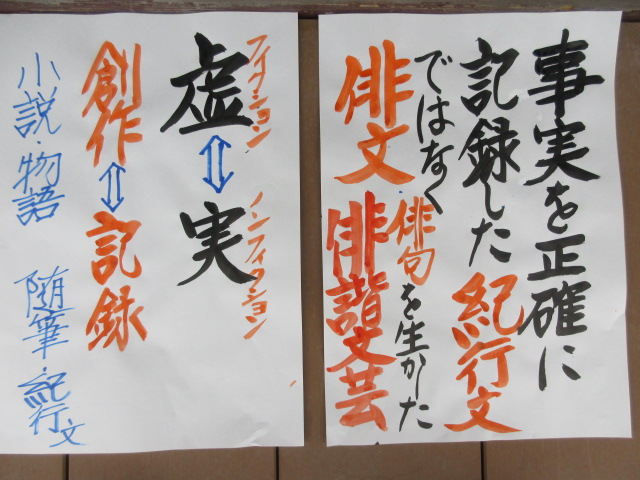 事実を正確に
記録した紀行文
ではなく俳句を生かした
俳文 俳諧文芸
フィクション ノンフィクション
虚⇔実
創作⇔記録
小説・物語 随筆・紀行文